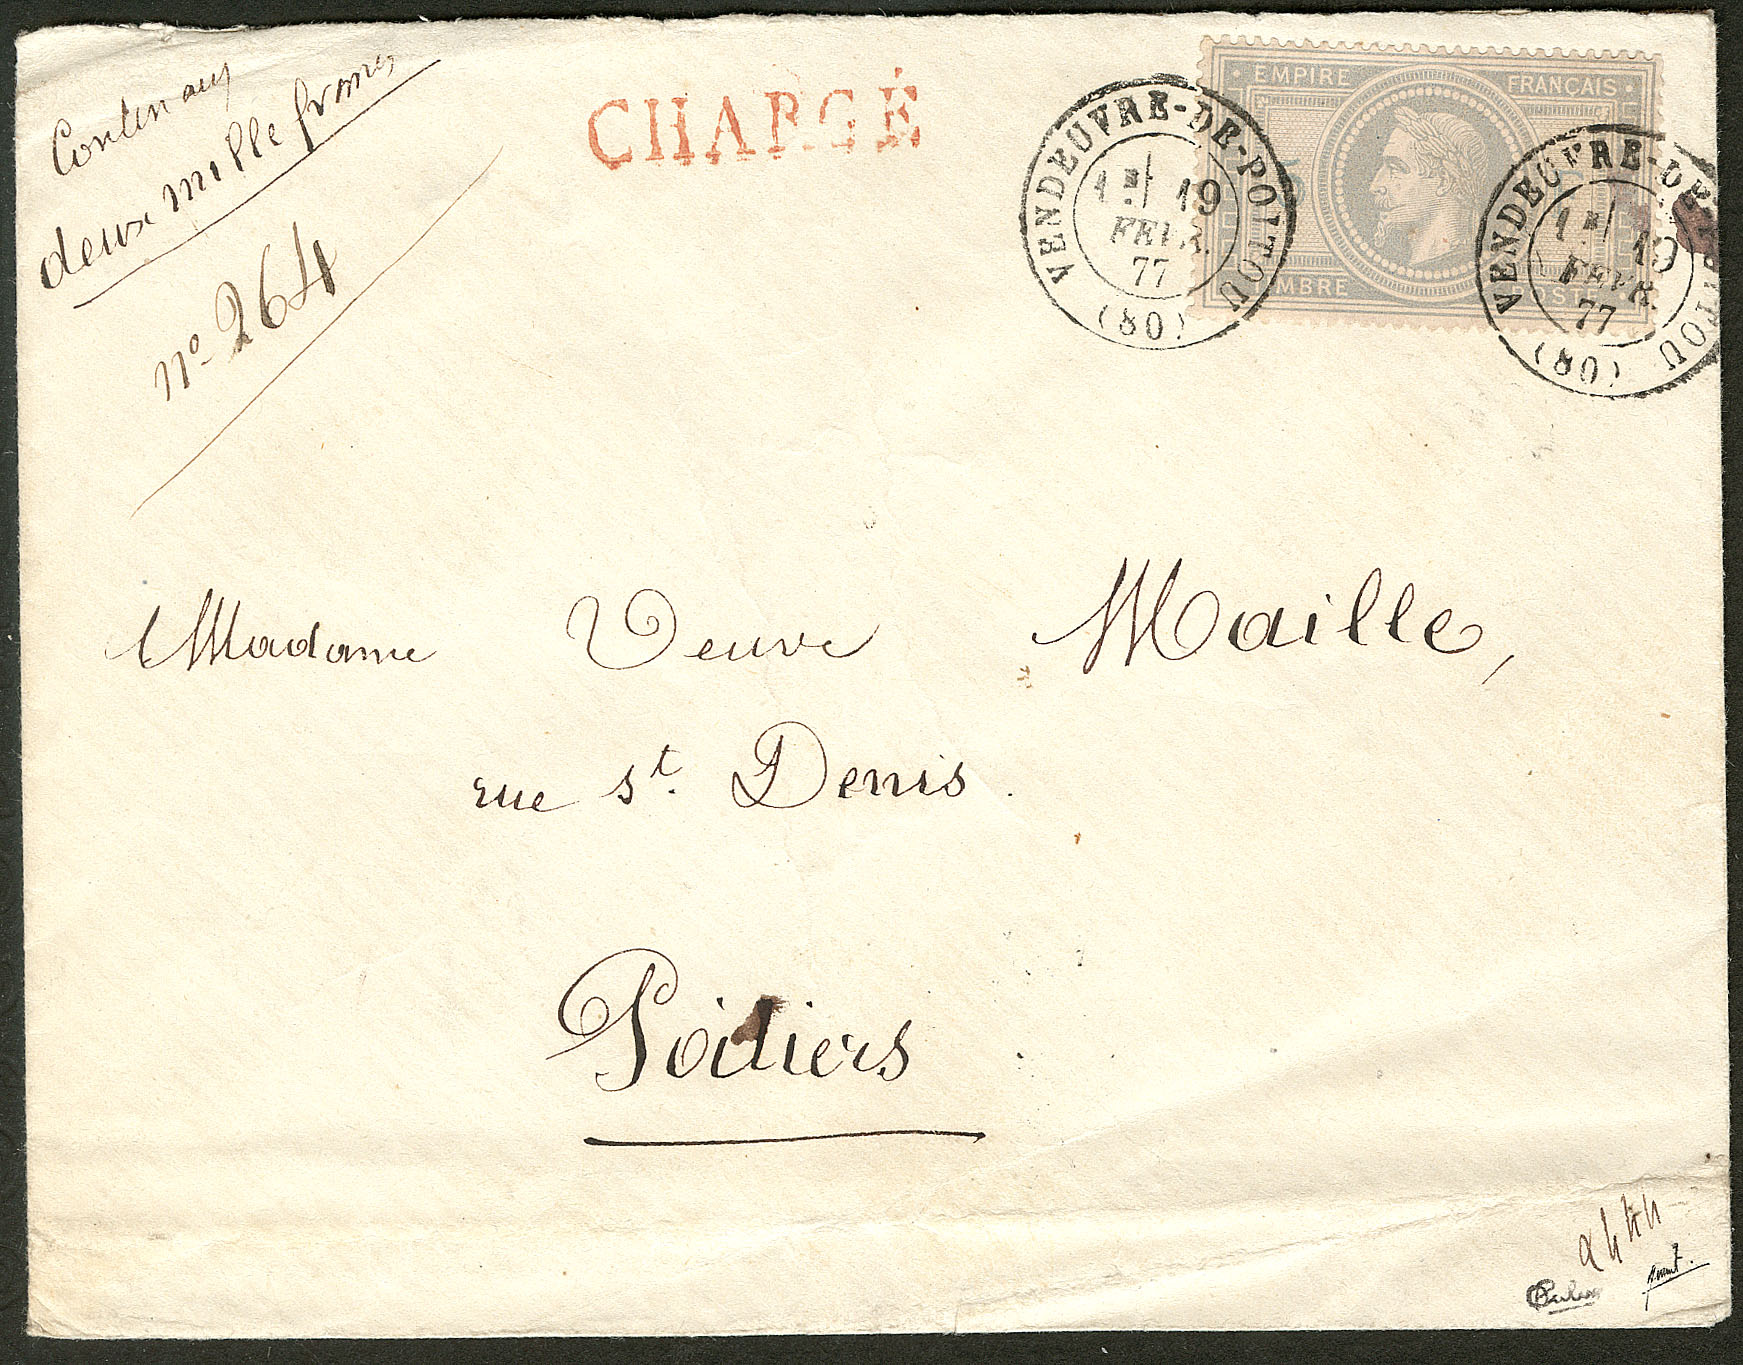 Contenant
deux mille francs
no 264
CHARGÉ
EMPIRE FRANÇAIS
5 5
TIMBRE POSTE
VENDEUVRE-DE-POITOU
1E 19
FEVR.
77
(80)
VENDEUVRE-DE-POITOU
1E 19
FEVR.
77
(80)
Madame Veuve Maille,
rue St. Denis.
Poitiers